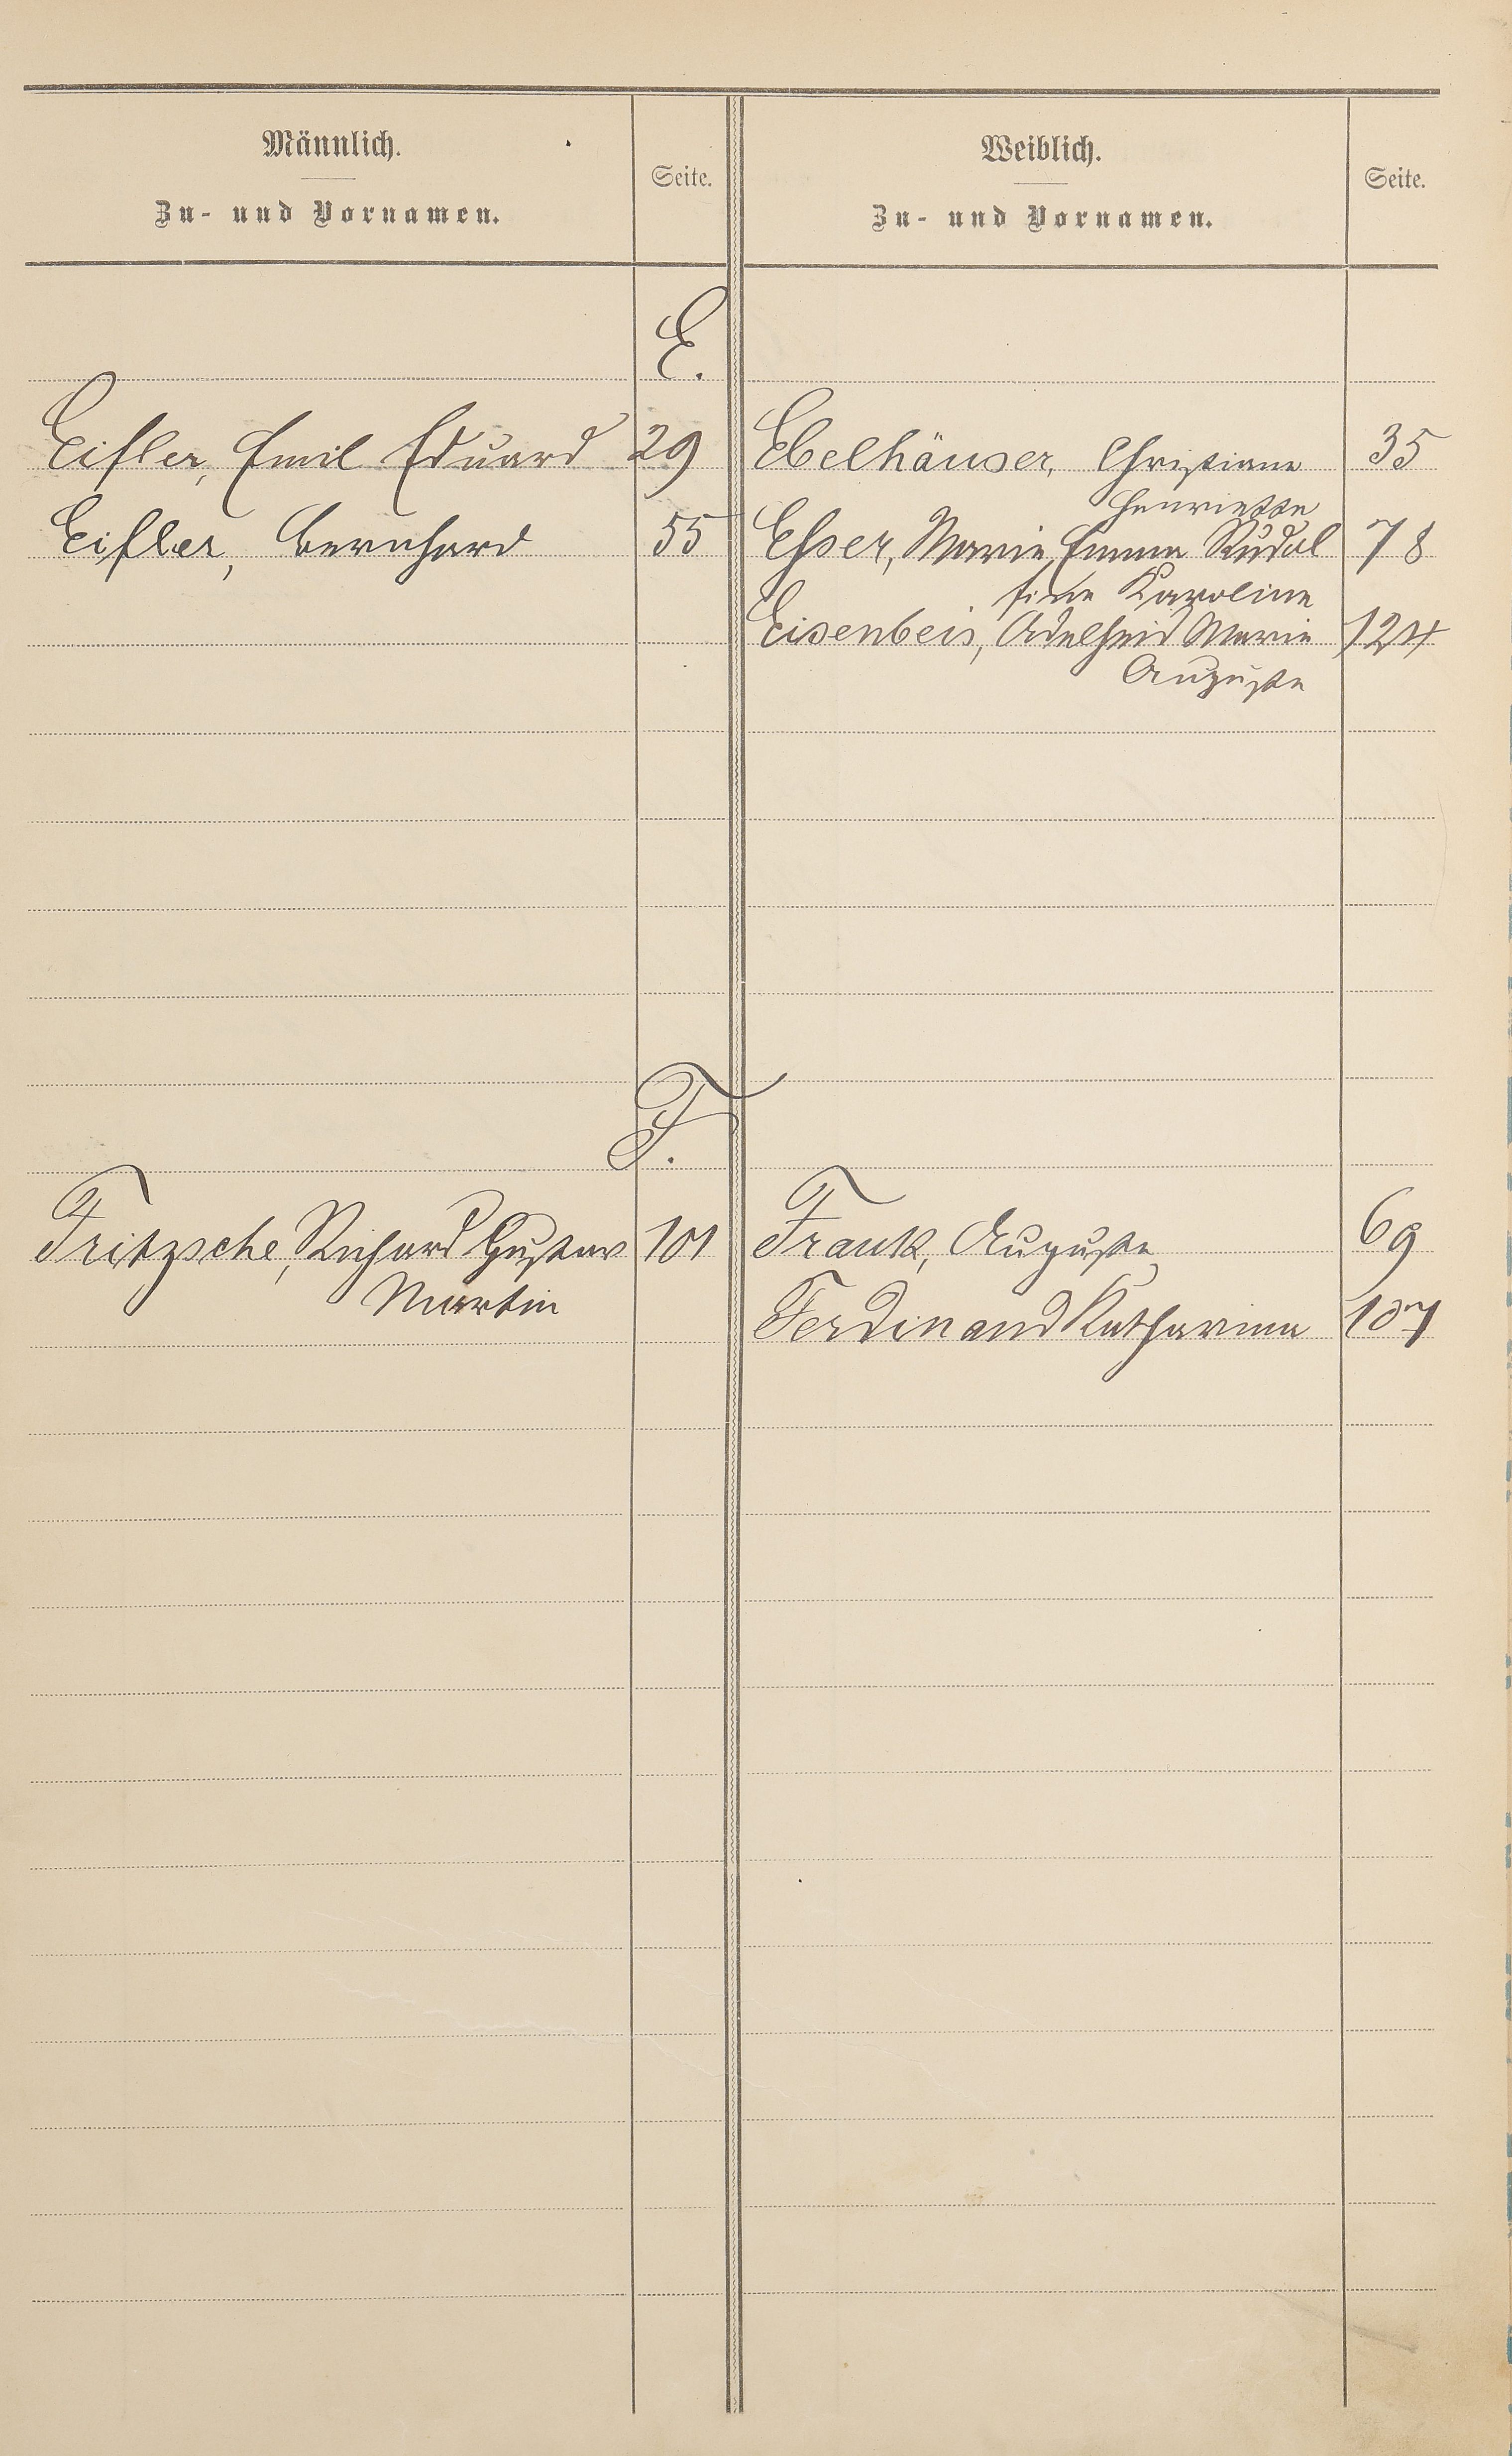 Männlich.
Zu- und Vornamen.
Seite.
Weiblich.
Zu- und Vornamen.
Seite.
E.
Eifler, Emil Eduard 29
Eifler, Bernhard 55
Ebelhäuser, Christiane 35
Henriette
Esser, Marie Emma Rudol 78
fine Karoline
Eisenbeis, Adelheid Marie 124
Auguste
F.
Fritzsche, Richard Gustav 101
Martin
Frank, Auguste 69
Ferdinand Katharina 107